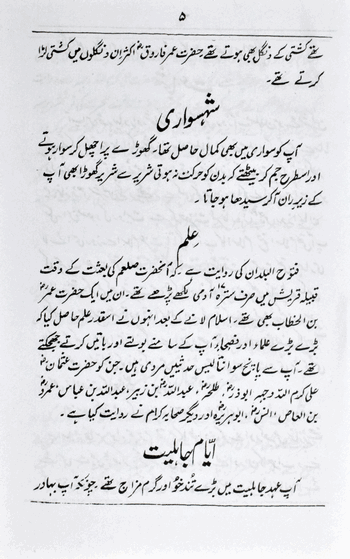 ۵
تھے کشتی کے دنگل بھی ہوتے تھے حضرت عمر فاروقؓ اکثر ان دنگلوں میں کشتی لڑا
کرتے تھے۔
شہسواری
آپ کو سواری میں بھی کمال حاصل تھا۔ گھوڑے پر اچھل کر سوار ہوتے
اور اسطرح جم کر بیٹھتے کہ بدن کو حرکت نہ ہوتی شریر سے شریر گھوڑا بھی آپ
کے زیر ران آکر سیدھا ہو جاتا۔
علم
فتوح البلدان کی روایت ہے کہ آنحضرت صلعم کی بعثت کے وقت
قبیلہ قریش میں صرف سترہ آدمی لکھے پڑھے تھے۔ ان میں ایک حضرت عمرؓ
بن الخطاب بھی تھے۔ اسلام لانے کے بعد انہوں نے اسقدر علم حاصل کیا کہ
بڑے بڑے علماء اور فصحاء آپ کے سامنے بولتے اور باتیں کرتے جھجکتے
تھے۔ آپ سے پانچ سو انتالیس حدیثیں مروی ہیں۔ جن کو حضرت عثمانؓ
علی کرم اللہ وجہہ ابوذرؓ۔ طلحہؓ۔ عبداللہ بن زبیرؓ عبداللہ بن عباس عمروؓ
بن العاص۔ انسؓ۔ ابوہریرہؓ اور دیگر صحابہ کرام نے روایت کیا ہے۔
ایام جاہلیت
آپ عہد جاہلیت میں بڑے تند خو اور گرم مزاج تھے۔ چونکہ آپ بہادر